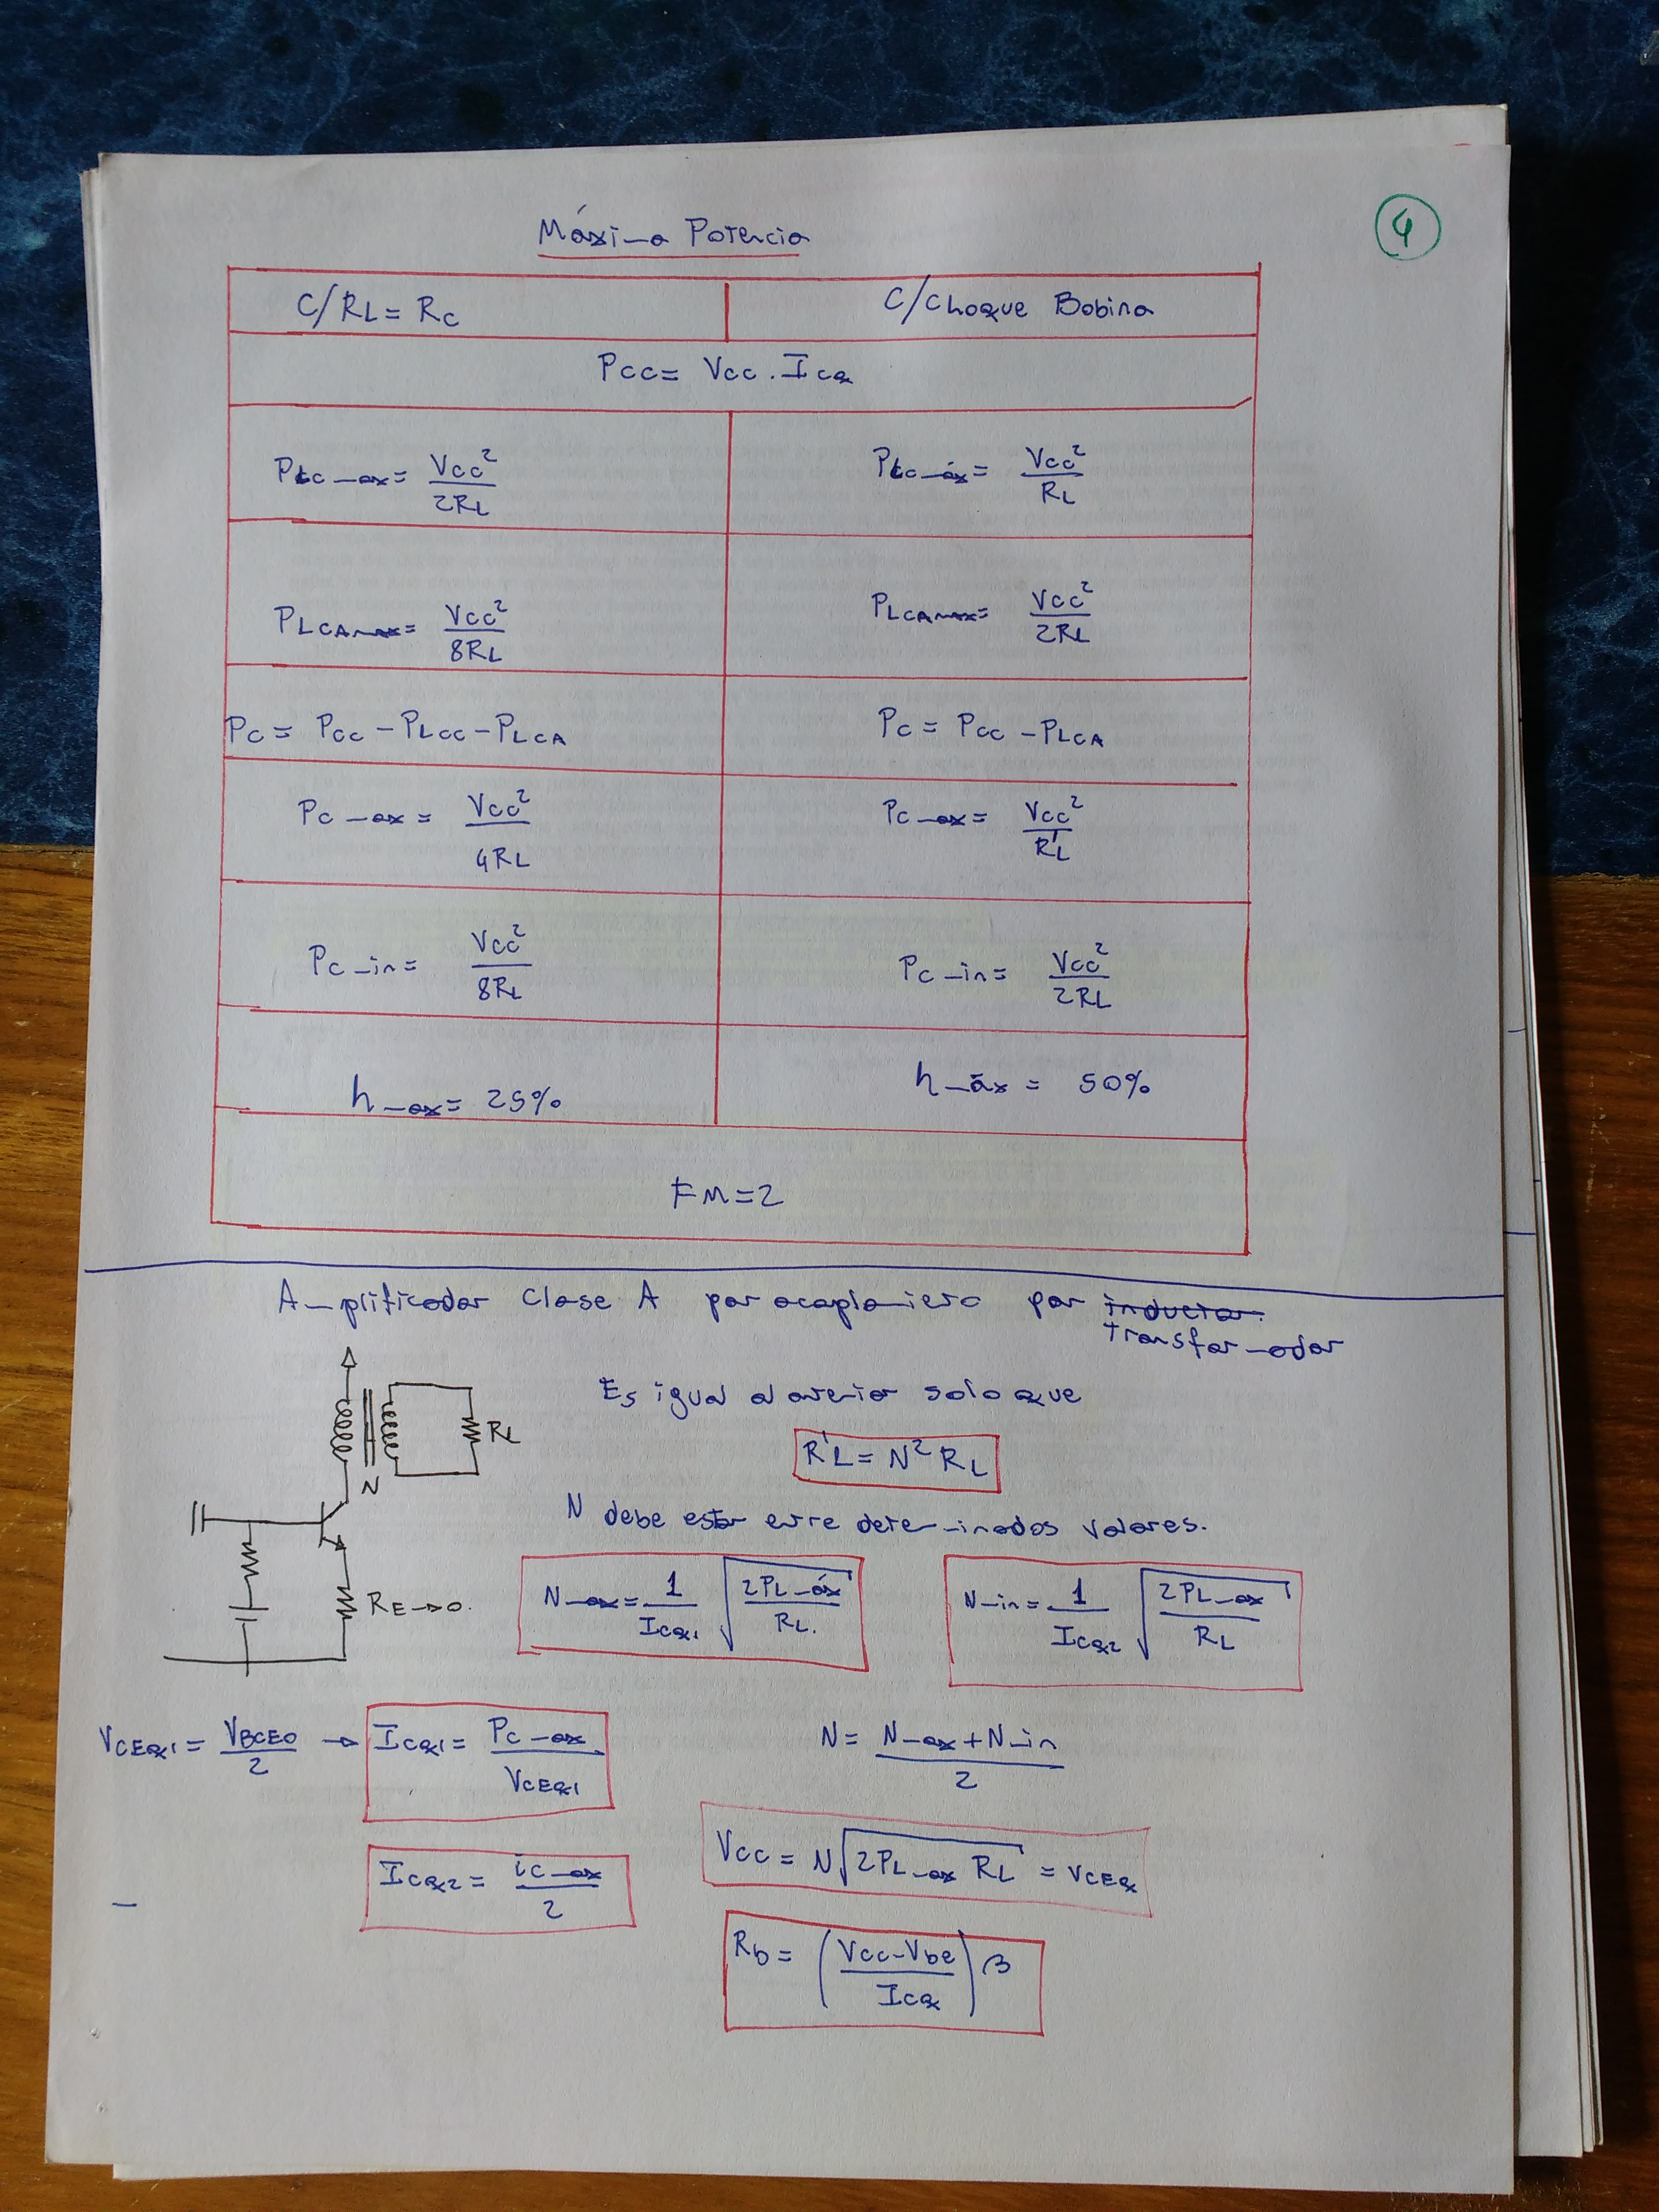 Máxima Potencia
4
C/RL = Rc
C/Choque Bobina
Pcc = Vcc . Icq
Pcc max = Vcc² / 2RL
Pcc máx = Vcc² / RL
PLCA max = Vcc² / 8RL
PLCA max = Vcc² / 2RL
Pc = Pcc - PLcc - PLCA
Pc = Pcc - PLCA
Pc max = Vcc² / 4RL
Pc max = Vcc² / R'L
Pc min = Vcc² / 8RL
Pc min = Vcc² / 2RL
h max = 25%
h máx = 50%
FM = 2
Amplificador Clase A por acoplamiento por inductor
transformador
Es igual al anterior solo que
R'L = N² RL
N debe estar entre determinados valores.
RL
N
RE → 0.
N max = 1/Icq1 √(2PL máx / RL.)
N min = 1/Icq2 √(2PL max / RL)
VCEQ1 = VBCEO / 2 → Icq1 = Pc max / VCEQ1
N = (N max + N min) / 2
Icq2 = ic max / 2
Vcc = N √(2PL max RL) = VCEQ
Rb = ((Vcc - Vbe) / Icq) β